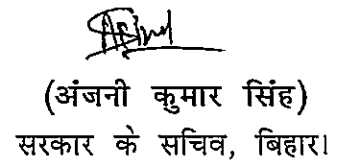 (अंजनी कुमार सिंह)
सरकार के सचिव, बिहार।